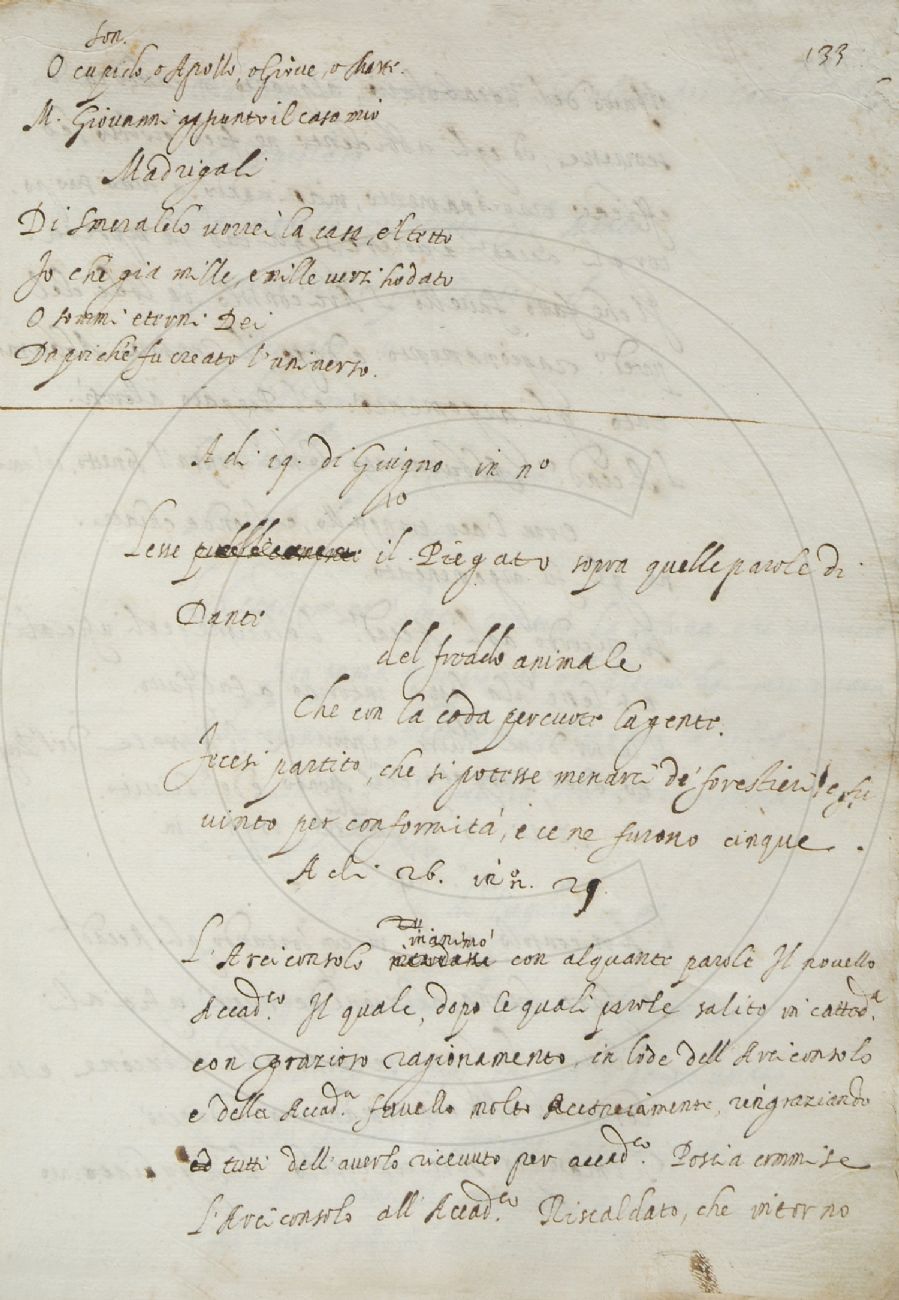 133
Son.
O cupido, o Apollo, o Giove, o Marte.
M. Giovanni appunto il caso mio
Madrigali
Di smeraldo vorrei la casa, e'l tetto
Io che gia mille, e mille versi ho dato
O sommi eterni Dei
Da poi chè fu creato l'universo.
A di 19. di Giugno in n.o
40
Lesse il Piegato sopra quelle parole di
Dante
del freddo animale
Che con la coda percuote la gente.
Fecesi partito, che si potesse menarci de' forestieri, e fu
vinto per conformità, e ce ne furono cinque.
A di 26. in n.o 29.
inanimò
L'Arciconsolo con alquante parole Il novello
Accad.co Il quale, dopo le quali parole salito in catted.a
con grazioso ragionamento, in lode dell'Arciconsolo
e della Accad.a favellò molto acconciamente, ringraziando
tutti dell'averlo ricevuto per accad.co. Poscia commise
L'Arciconsolo all'Accad.co Riscaldato, che intorno